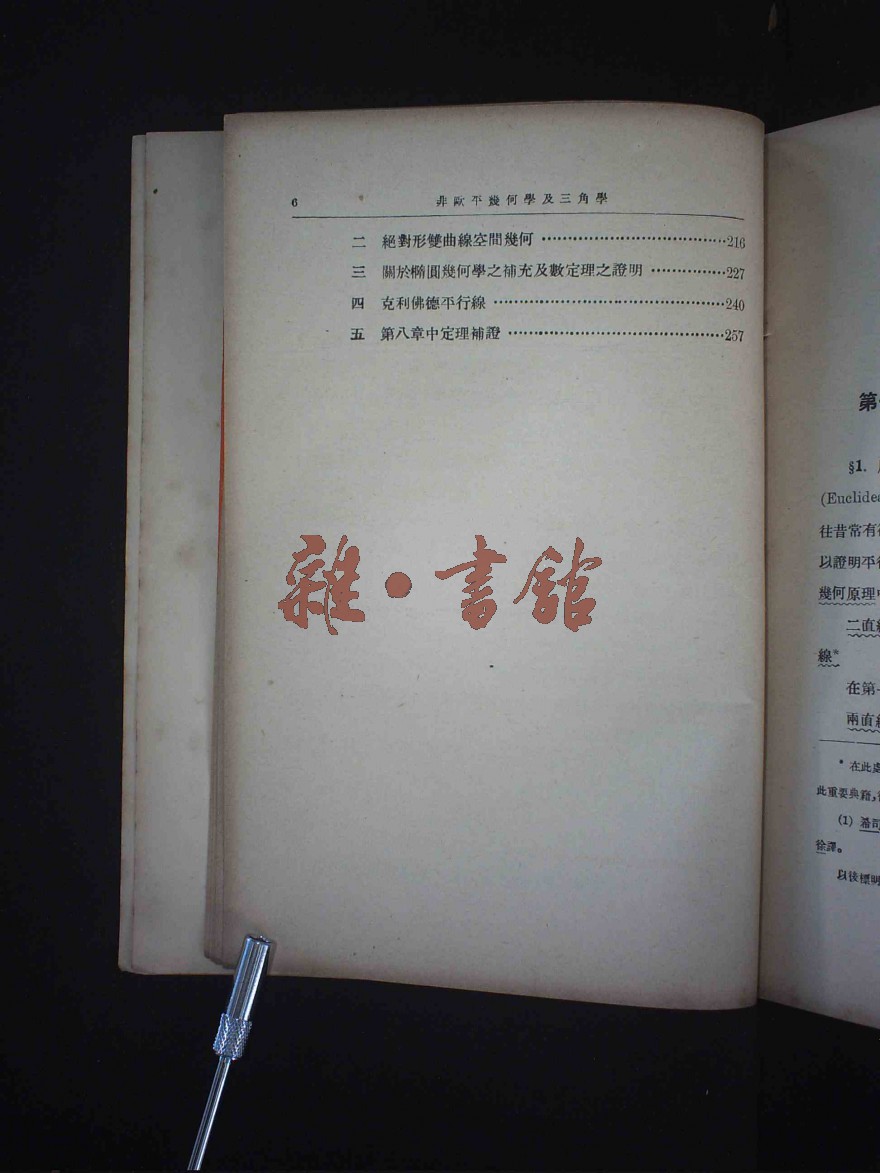 6 非歐平幾何學及三角學
二 絕對形雙曲線空間幾何 ……………………………216
三 關於橢圓幾何學之補充及數定理之證明 ……………227
四 克利佛德平行線 ……………………………………240
五 第八章中定理補證 …………………………………257
雜·書館
第
§1.
(Euclidea
往昔常有
以證明平
幾何原理
二直
線*
在第
兩直
* 在此處
此重要典籍,
(1) 潘司
徐譯。
以後標明